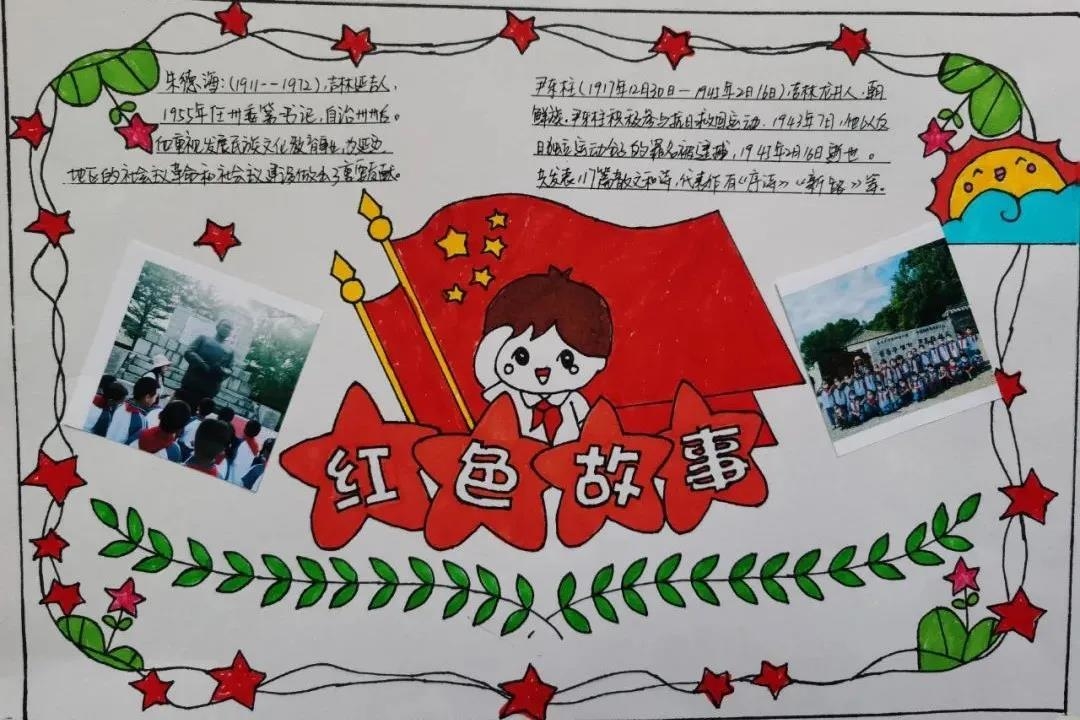 朱德海:(1911--1972),吉林延吉人,
1955年任州委第一书记,自治州州长。
他重视发展民族文化教育事业,为延边
地区的社会主义革命和社会主义建设做出了重要贡献。
尹东柱(1917年12月30日—1945年2月16日),吉林龙井人,朝
鲜族,尹东柱积极参与抗日救国运动,1943年7月,他以反
日独立运动的罪名被逮捕,1945年2月16日逝世。
共发表117篇散文和诗,代表作有《序诗》《新路》等。
红色故事